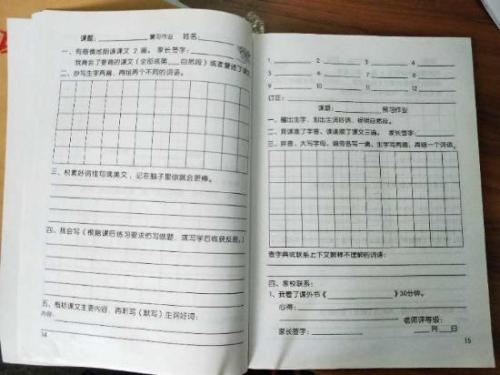 课题: 复习作业 姓名:
一、有感情地朗读课文 2 遍。 家长签字:
我背会了要背的课文(全部或第 自然段)或者复述了课文
二、抄写生字两遍，再组两个不同的词语。
三、积累好词佳句或美文，记在脑子里你就会更棒。
四、我会写(根据课后练习要求仿写做题，或写学后收获反思。)
五、概括课文主要内容，再听写(默写)生词好词:
内容:
14
1 2 3 4
5 6 7 8
9 10 11 12
订正:
课题: 预习作业
一、圈出生字，划出生词好词，标明自然段。
二、我读准了字音、读通顺了课文三遍。 家长签字
三、拼音、大写字母、偏旁各写一遍，生字写两遍，再组一个词语。
查字典或联系上下文解释不理解的词语:
四、家校联系:
1、我看了课外书《 》30分钟。
心得:
老师评等级:
家长签字: 月 日
15